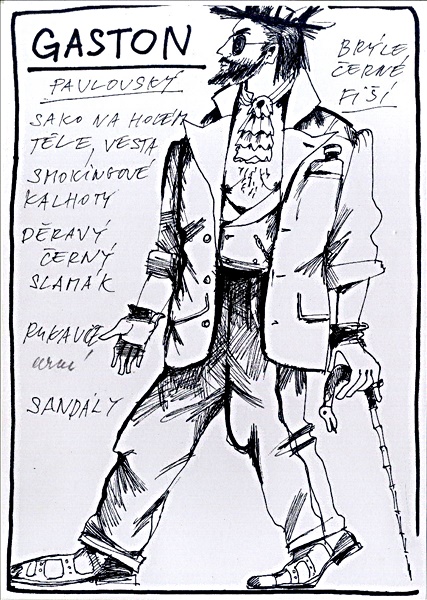 GASTON
PAVLOVSKÝ
SAKO NA HOLÉM
TĚLE, VESTA
SMOKINGOVÉ
KALHOTY
DĚRAVÝ
ČERNÝ
SLAMÁK
RUKAVICE
SANDÁLY
BRÝLE
ČERNÉ
FIŠÍ